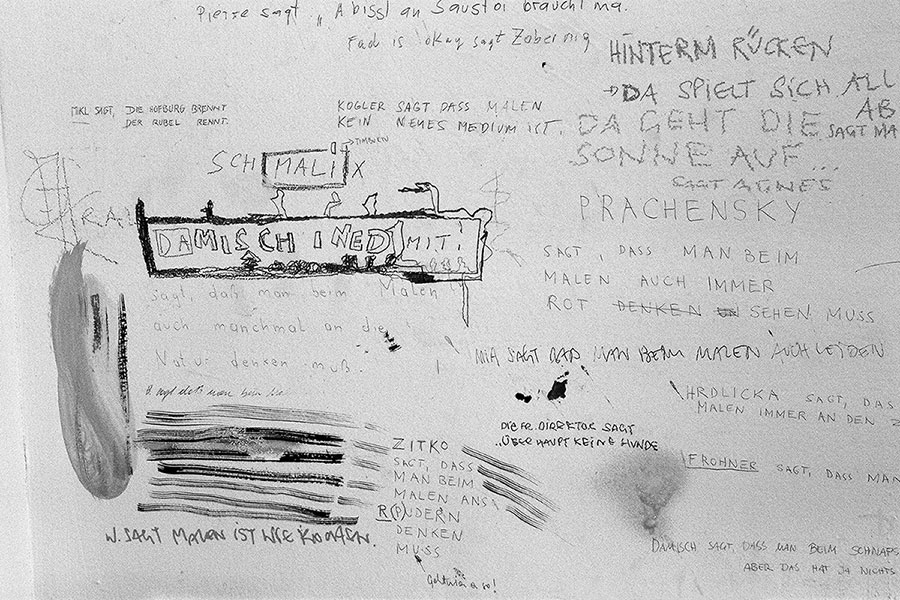 Pierre sagt „A bissl an Saustoi braucht ma.
Fad is okay sagt Zobernig
HINTERM RÜCKEN
→DA SPIELT SICH ALL
AB
SAGT MA
MKL SAGT, DIE HOFBURG BRENNT
DER RUBEL RENNT.
KOGLER SAGT DASS MALEN
KEIN NEUES MEDIUM IST.
DA GEHT DIE
SONNE AUF...
SAGT AGNES
SCHMALIX
DAMISCH INED MIT!
sagt, daß man beim Malen
auch manchmal an die
Natur denken muß.
PRACHENSKY
SAGT, DASS MAN BEIM
MALEN AUCH IMMER
ROT DENKEN SEHEN MUSS
MIA SAGT DAß MAN BEIM MALEN AUCH LEIDEN
HRDLICKA SAGT, DAS
MALEN IMMER AN DEN Z
DIE FR. DIREKTOR SAGT
„ÜBERHAUPT KEINE HUNDE
FROHNER SAGT, DASS MAN
ZITKO
SAGT, DASS
MAN BEIM
MALEN ANS
R(P)UDERN
DENKEN
MUSS
W. SAGT MALEN IST WIE
DAMISCH SAGT, DASS MAN BEIM SCHNAPS
ABER DAS HAT JA NICHTS